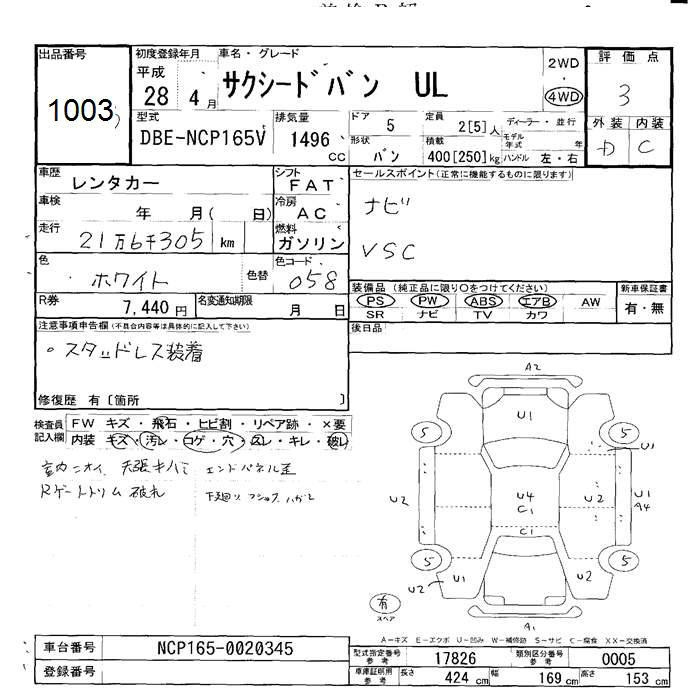 出品番号
1003
初度登録年月
平成
28 4 月
車名・グレード
サクシードバン UL
2WD
・
4WD
評価点
3
外装 内装
D C
型式
DBE-NCP165V
排気量
1496
CC
ドア
5
形状
バン
定員
2[5]人
積載
400[250]kg
ディーラー・並行
モデル年式 年
ハンドル 左・右
車歴
レンタカー
車検
年 月( 日)
走行
21万6千305 km
シフト
FAT
冷房
AC
燃料
ガソリン
色
ホワイト
色替
色コード
058
R券
7,440 円
名変通知期限
月 日
セールスポイント(正常に機能するものに限ります)
ナビ
VSC
装備品 (純正品に限り○をつけてください)
PS PW ABS エアB AW
SR ナビ TV カワ
新車保証書
有・無
後日品
注意事項申告欄(不具合内容等は具体的に記入して下さい)
○スタッドレス装着
修復歴 有[箇所 ]
検査員
記入欄
FW キズ・飛石・ヒビ割・リペア跡・×要
内装 キズ・汚レ・コゲ・穴・スレ・キレ・破レ
室内ニオイ、天張キバミ エンドパネル歪
Rゲートトリム 破れ
A2
U1
5 5
U1
U2
U4
C1
U2
U1
A4
C1
5 5
U2
U1
U2
有
スペア
A1
A-キズ E-エクボ U-凹み W-補修跡 S-サビ C-腐食 XX-交換済
車台番号
NCP165-0020345
登録番号
型式指定番号
参考
17826
類別区分番号
参考
0005
車庫証明用
参考
長さ
424 cm
幅
169 cm
高さ
153 cm